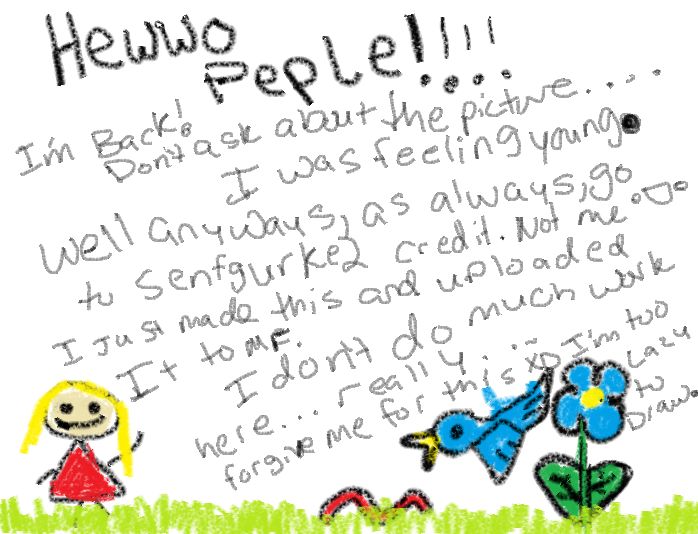 Hewwo
Peple!!!!
I'm Back!
Don't ask about the picture....
I was feeling young.
Well anyways, as always, go
to Senfgurke2 credit. Not me
I just made this and uploaded
It to MF.
I don't do much work
here... really...
forgive me for this XD I'm too
Lazy
to
Draw.